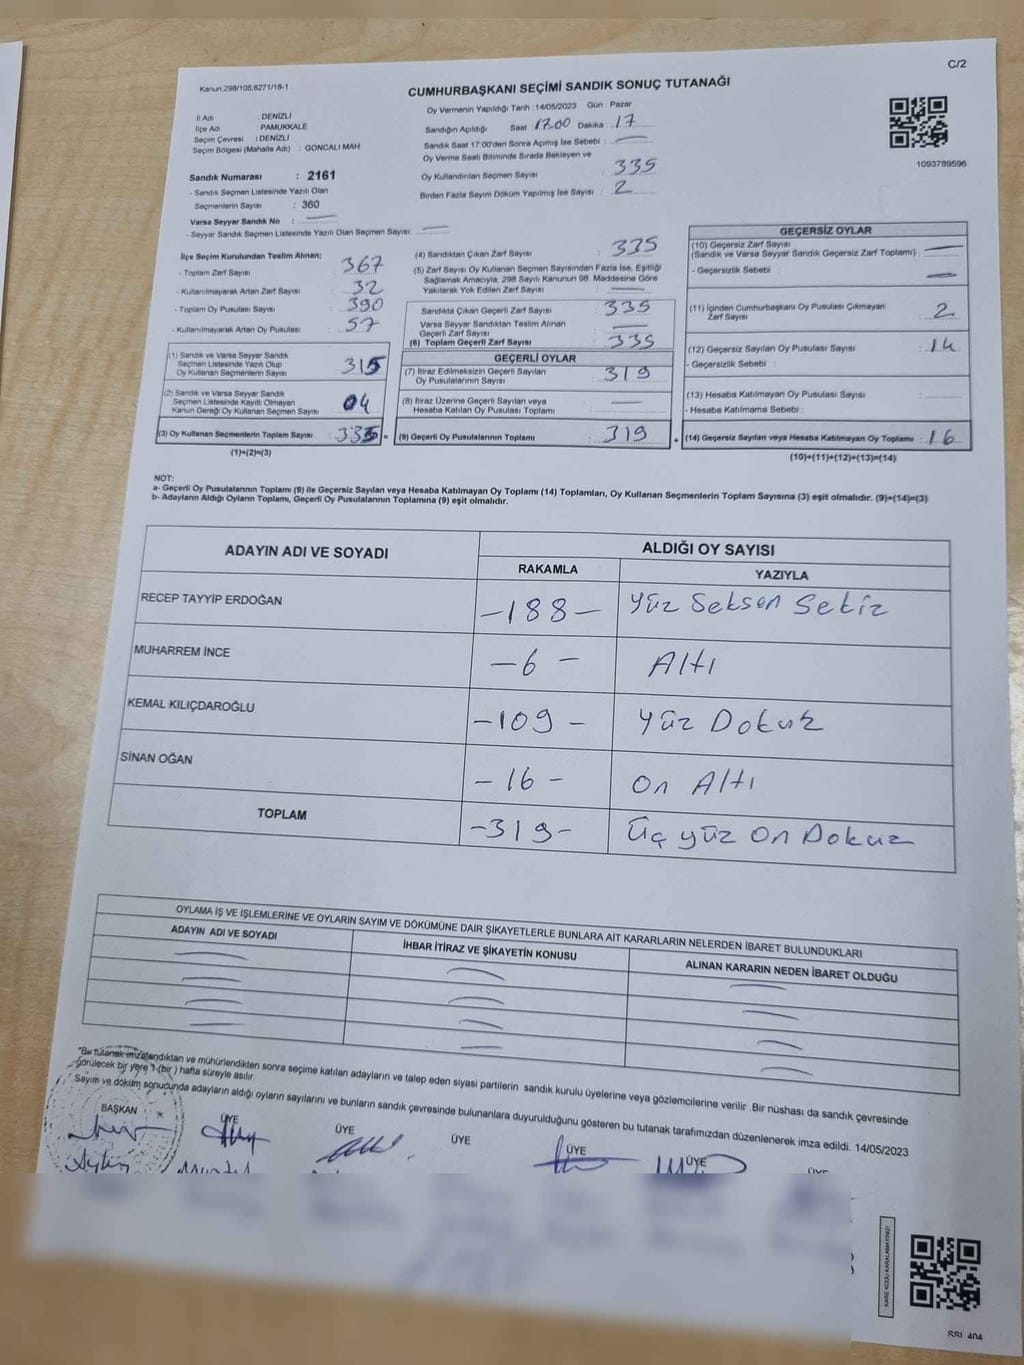 C/2
Kanun.298/105,6271/18-1
CUMHURBAŞKANI SEÇİMİ SANDIK SONUÇ TUTANAĞI
Oy Vermenin Yapıldığı Tarih : 14/05/2023 Gün : Pazar
İl Adı : DENİZLİ
İlçe Adı : PAMUKKALE
Seçim Çevresi : DENİZLİ
Seçim Bölgesi (Mahalle Adı) : GONCALI MAH
Sandığın Açıldığı Saat : 17.00 Dakika : 17
Sandık Saat 17:00'den Sonra Açımış İse Sebebi :
Oy Verme Saati Bitiminde Sırada Bekleyen ve
Oy Kullandırılan Seçmen Sayısı : 335
Birden Fazla Sayım Döküm Yapılmış İse Sayısı : 2
1093789596
Sandık Numarası : 2161
- Sandık Seçmen Listesinde Yazılı Olan
Seçmenlerin Sayısı : 360
Varsa Seyyar Sandık No :
- Seyyar Sandık Seçmen Listesinde Yazılı Olan Seçmen Sayısı :
İlçe Seçim Kurulundan Teslim Alınan;
- Toplam Zarf Sayısı : 367
- Kullanılmayarak Artan Zarf Sayısı : 32
- Toplam Oy Pusulası Sayısı : 390
- Kullanılmayarak Artan Oy Pusulası : 57
(1) Sandık ve Varsa Seyyar Sandık
Seçmen Listesinde Yazılı Olup
Oy Kullanan Seçmenlerin Sayısı : 315
(2) Sandık ve Varsa Seyyar Sandık
Seçmen Listesinde Kayıtlı Olmayan
Kanun Gereği Oy Kullanan Seçmen Sayısı : 04
(3) Oy Kullanan Seçmenlerin Toplam Sayısı : 335 =
(1)+(2)=(3)
(4) Sandıktan Çıkan Zarf Sayısı : 335
(5) Zarf Sayısı Oy Kullanan Seçmen Sayısından Fazla İse, Eşitliği
Sağlamak Amacıyla, 298 Sayılı Kanunun 98. Maddesine Göre
Yakılarak Yok Edilen Zarf Sayısı :
Sandıkta Çıkan Geçerli Zarf Sayısı : 335
Varsa Seyyar Sandıktan Teslim Alınan
Geçerli Zarf Sayısı :
(6) Toplam Geçerli Zarf Sayısı : 335
GEÇERLİ OYLAR
(7) İtiraz Edilmeksizin Geçerli Sayılan
Oy Pusulalarının Sayısı : 319
(8) İtiraz Üzerine Geçerli Sayılan veya
Hesaba Katılan Oy Pusulası Toplamı :
(9) Geçerli Oy Pusulalarının Toplamı : 319 +
GEÇERSİZ OYLAR
(10) Geçersiz Zarf Sayısı
(Sandık ve Varsa Seyyar Sandık Geçersiz Zarf Toplamı) :
- Geçersizlik Sebebi :
(11) İçinden Cumhurbaşkanı Oy Pusulası Çıkmayan
Zarf Sayısı : 2
(12) Geçersiz Sayılan Oy Pusulası Sayısı : 14
- Geçersizlik Sebebi :
(13) Hesaba Katılmayan Oy Pusulası Sayısı :
- Hesaba Katılmama Sebebi :
(14) Geçersiz Sayılan veya Hesaba Katılmayan Oy Toplamı : 16
(10)+(11)+(12)+(13)=(14)
NOT:
a- Geçerli Oy Pusulalarının Toplamı (9) ile Geçersiz Sayılan veya Hesaba Katılmayan Oy Toplamı (14) Toplamları, Oy Kullanan Seçmenlerin Toplam Sayısına (3) eşit olmalıdır. (9)+(14)=(3)
b- Adayların Aldığı Oyların Toplamı, Geçerli Oy Pusulalarının Toplamına (9) eşit olmalıdır.
ADAYIN ADI VE SOYADI
ALDIĞI OY SAYISI
RAKAMLA YAZIYLA
RECEP TAYYİP ERDOĞAN -188- Yüz Seksen Sekiz
MUHARREM İNCE -6- Altı
KEMAL KILIÇDAROĞLU -109- Yüz Dokuz
SİNAN OĞAN -16- On Altı
TOPLAM -319- Üç yüz On Dokuz
OYLAMA İŞ VE İŞLEMLERİNE VE OYLARIN SAYIM VE DÖKÜMÜNE DAİR ŞİKAYETLERLE BUNLARA AİT KARARLARIN NELERDEN İBARET BULUNDUKLARI
ADAYIN ADI VE SOYADI İHBAR İTİRAZ VE ŞİKAYETİN KONUSU ALINAN KARARIN NEDEN İBARET OLDUĞU
*Bu tutanak imzalandıktan ve mühürlendikten sonra seçime katılan adayların ve talep eden siyasi partilerin sandık kurulu üyelerine veya gözlemcilerine verilir .Bir nüshası da sandık çevresinde
görülecek bir yere 1 (bir ) hafta süreyle asılır.
* Sayım ve döküm sonucunda adayların aldığı oyların sayılarını ve bunların sandık çevresinde bulunanlara duyurulduğunu gösteren bu tutanak tarafımızdan düzenlenerek imza edildi. 14/05/2023
BAŞKAN ÜYE ÜYE ÜYE ÜYE ÜYE ÜYE